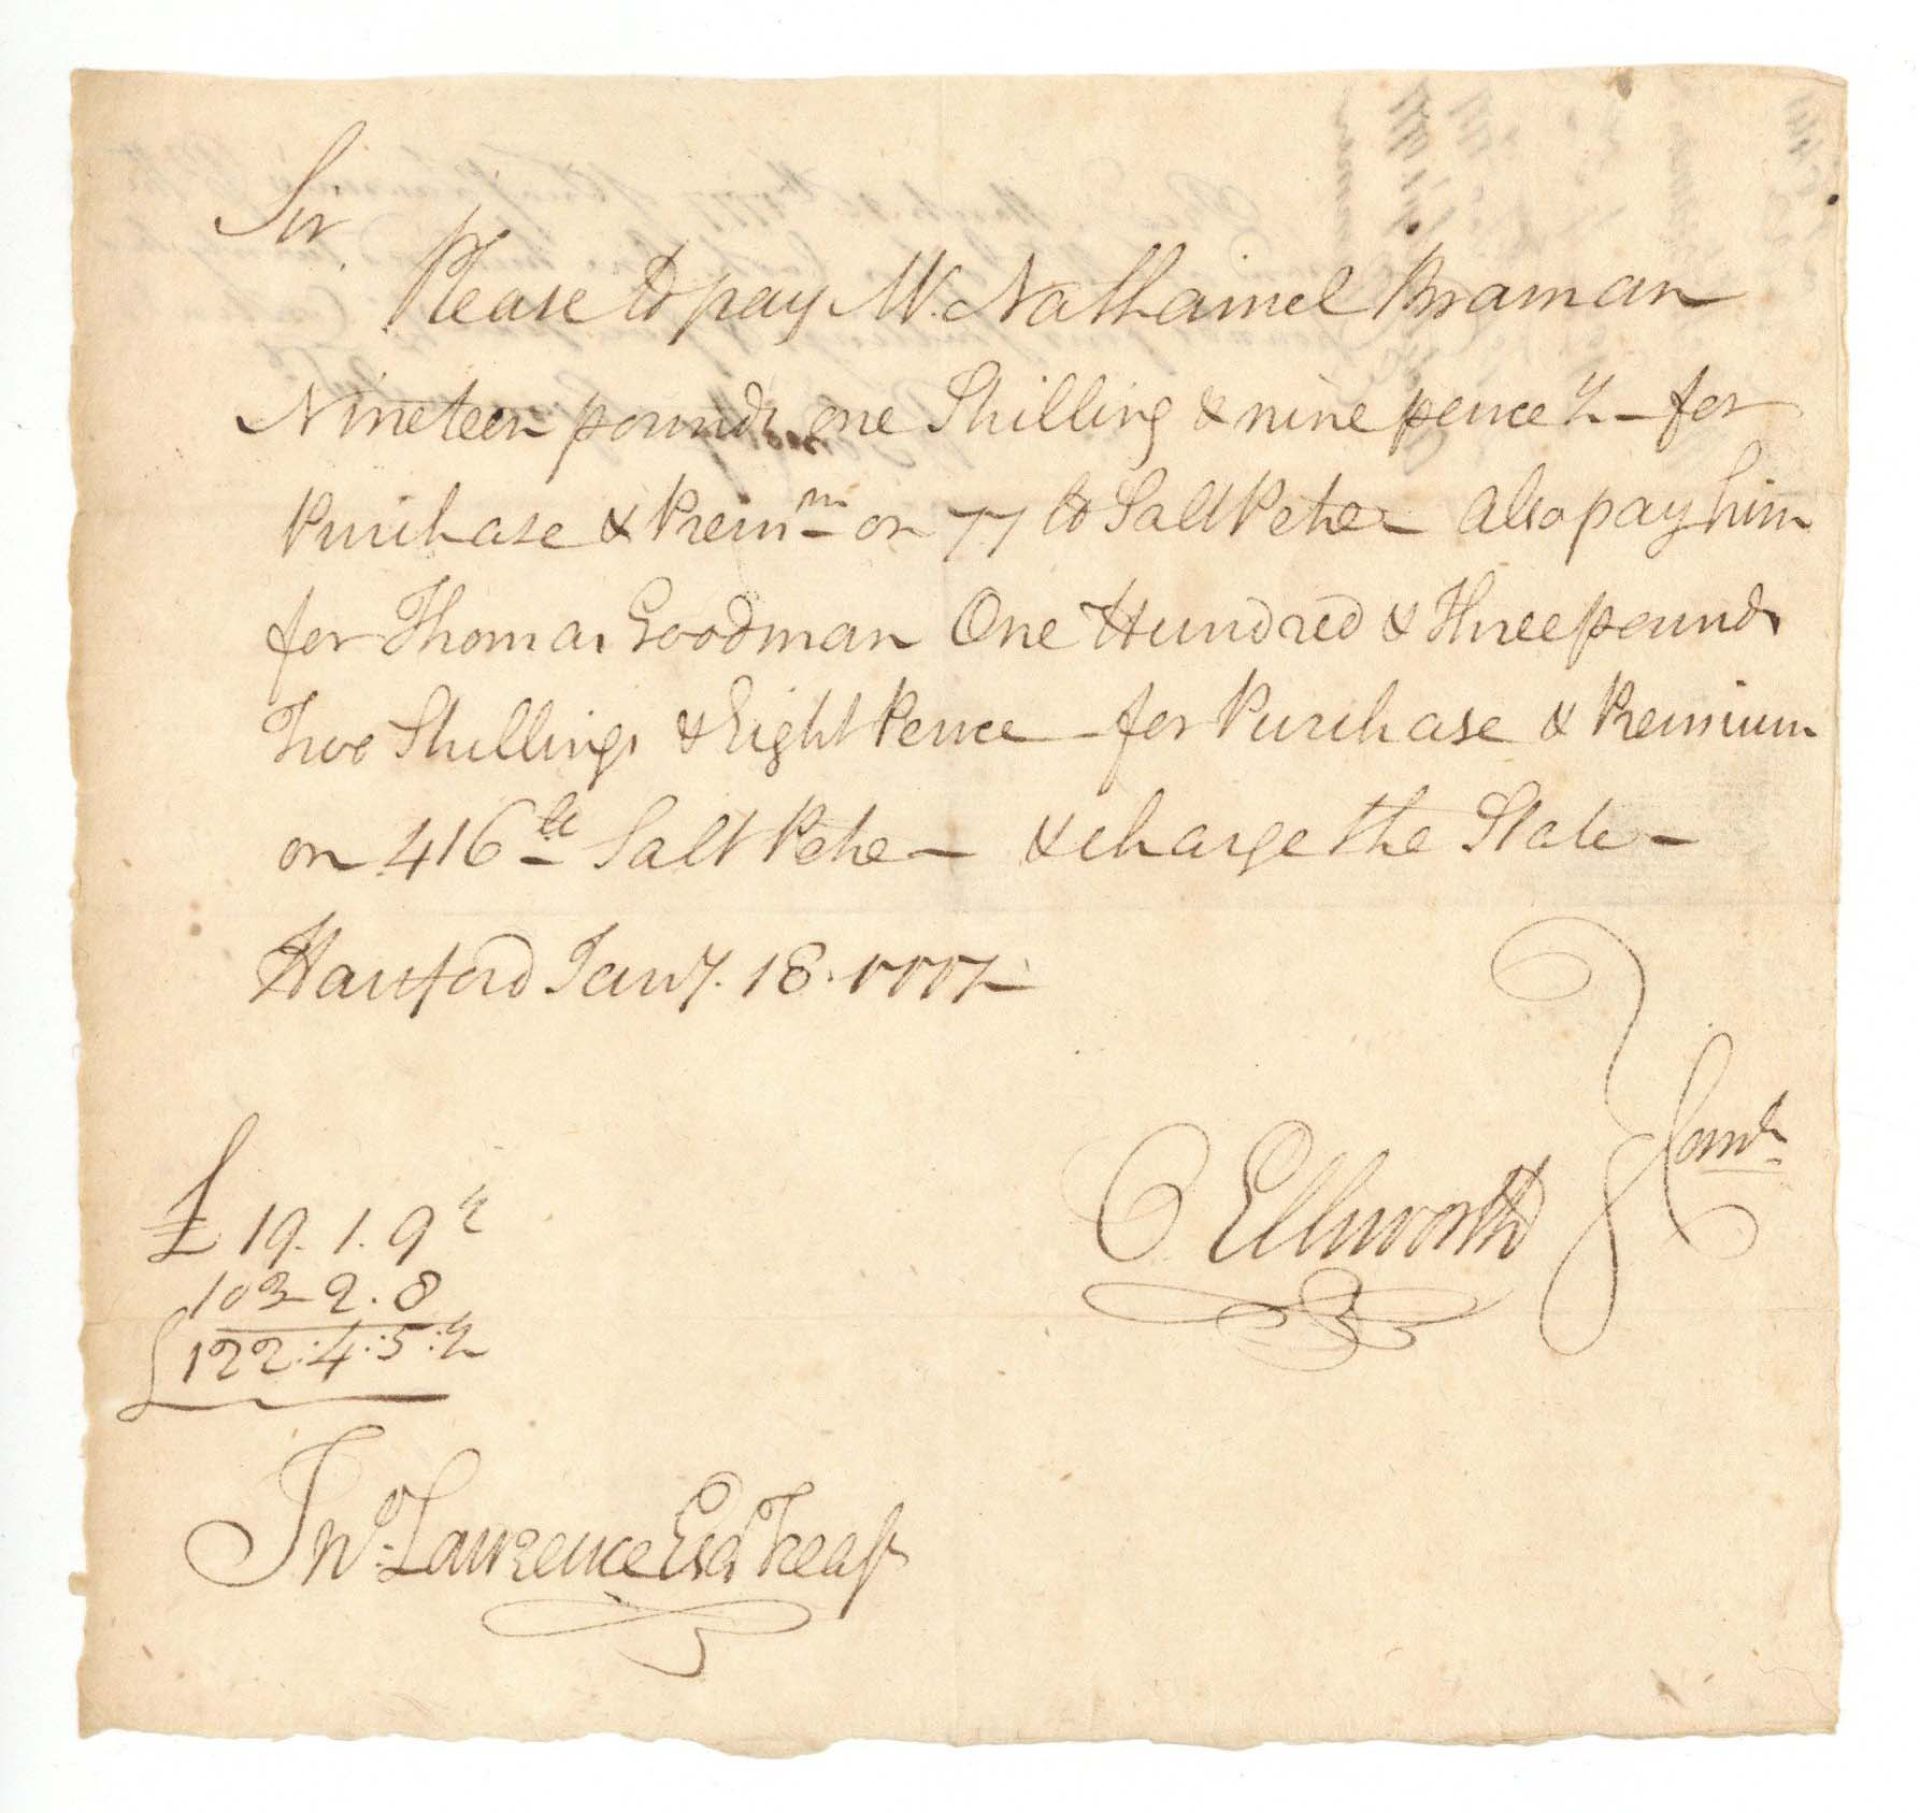 Sir.
Please to pay Mr. Nathaniel Braman
Nineteen pounds one Shilling & nine pence ½ – for
Purchase & Prem.m on 77 lb Salt Petre – also pay him
for Thomas Goodman One Hundred & Three pounds
Two Shillings & Eight Pence – for Purchase & Premium
on 416 lb Salt Petre – & charge the State –
Hartford Jan.y. 18. 1777
£ 19. 1. 9 ½
103 – 2. 8
£ 122 : 4 : 5 : ½
O. Ellsworth } Comte
Jno. Lawrence Esqr Treasr